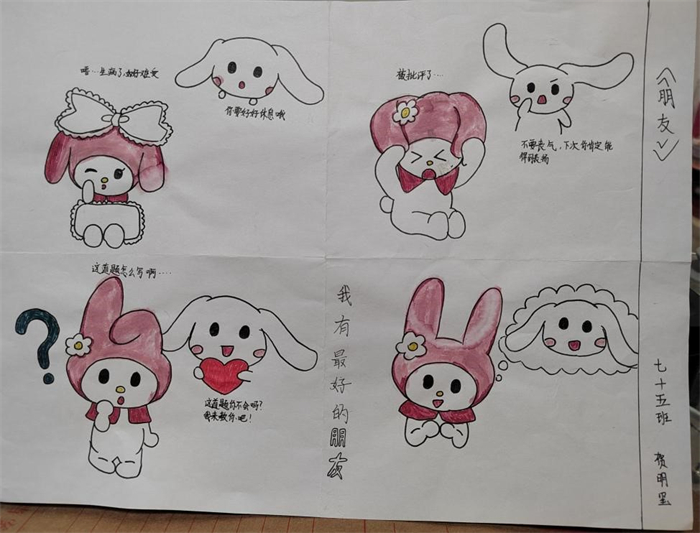 唔…生病了,好难受
你要好好休息哦
被批评了…
不要丧气,下次肯定能
《朋友》
这道题怎么写啊….
这道题你不会吗?
我来教你吧!
我有最好的朋友
七十五班 贺明星